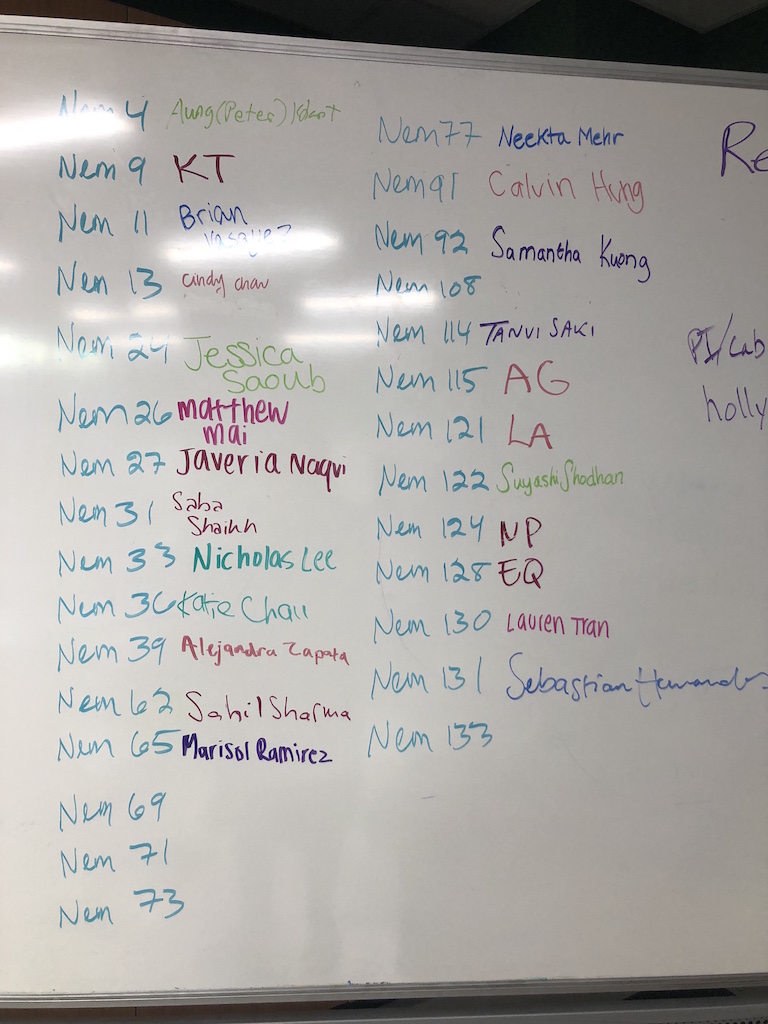 Nem 4 Aung (Peter)
Nem 9 KT
Nem 11 Brian
Vasquez
Nem 13 Cindy Chau
Nem 24 Jessica
Saoub
Nem 26 matthew
mai
Nem 27 Javeria Naqvi
Nem 31 Saba
Shaikh
Nem 33 Nicholas Lee
Nem 36 Katie Chau
Nem 39 Alejandra Zapata
Nem 62 Sahil Sharma
Nem 65 Marisol Ramirez
Nem 69
Nem 71
Nem 73
Nem 77 Neekta Mehr
Nem 91 Calvin Hung
Nem 92 Samantha Kuong
Nem 108
Nem 114 TANVI SAKI
Nem 115 AG
Nem 121 LA
Nem 122 Suyashi Shodhan
Nem 124 NP
Nem 128 EQ
Nem 130 Lauren Tran
Nem 131 Sebastian Hernandez
Nem 133
Re
PI/Lab
holly